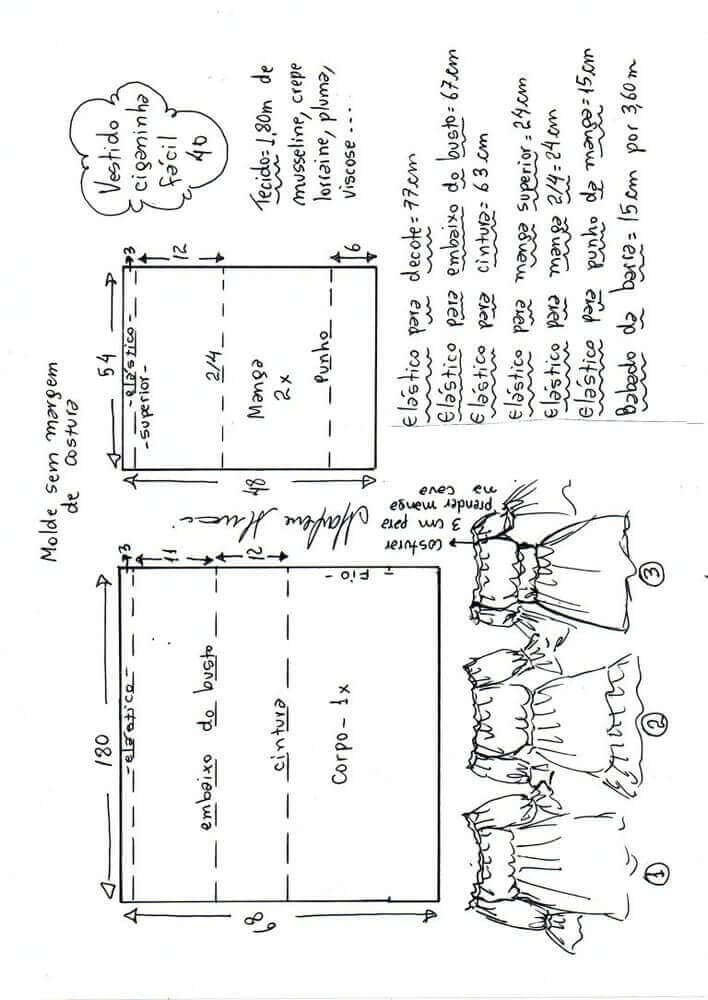 Molde sem margem
de costura
Vestido
ciganinha
fácil
40
Tecido=1,80m de
musseline, crepe
lorraine, pluma,
viscose....
180
-elástico-
3
11
embaixo do busto
12
cintura
Corpo-1x
-Fio-
68
Marlene Mukai
54
-elástico-
-superior-
3
12
2/4
Manga
2x
Punho
6
48
costurar
3 cm para
prender manga
na cava
1
2
3
Elástico para decote=77cm
Elástico para embaixo do busto=67cm
Elástico para cintura=63cm
Elástico para manga superior=24cm
Elástico para manga 2/4=24cm
Elástico para punho da manga=15cm
Babado da barra=15cm por 3,60m